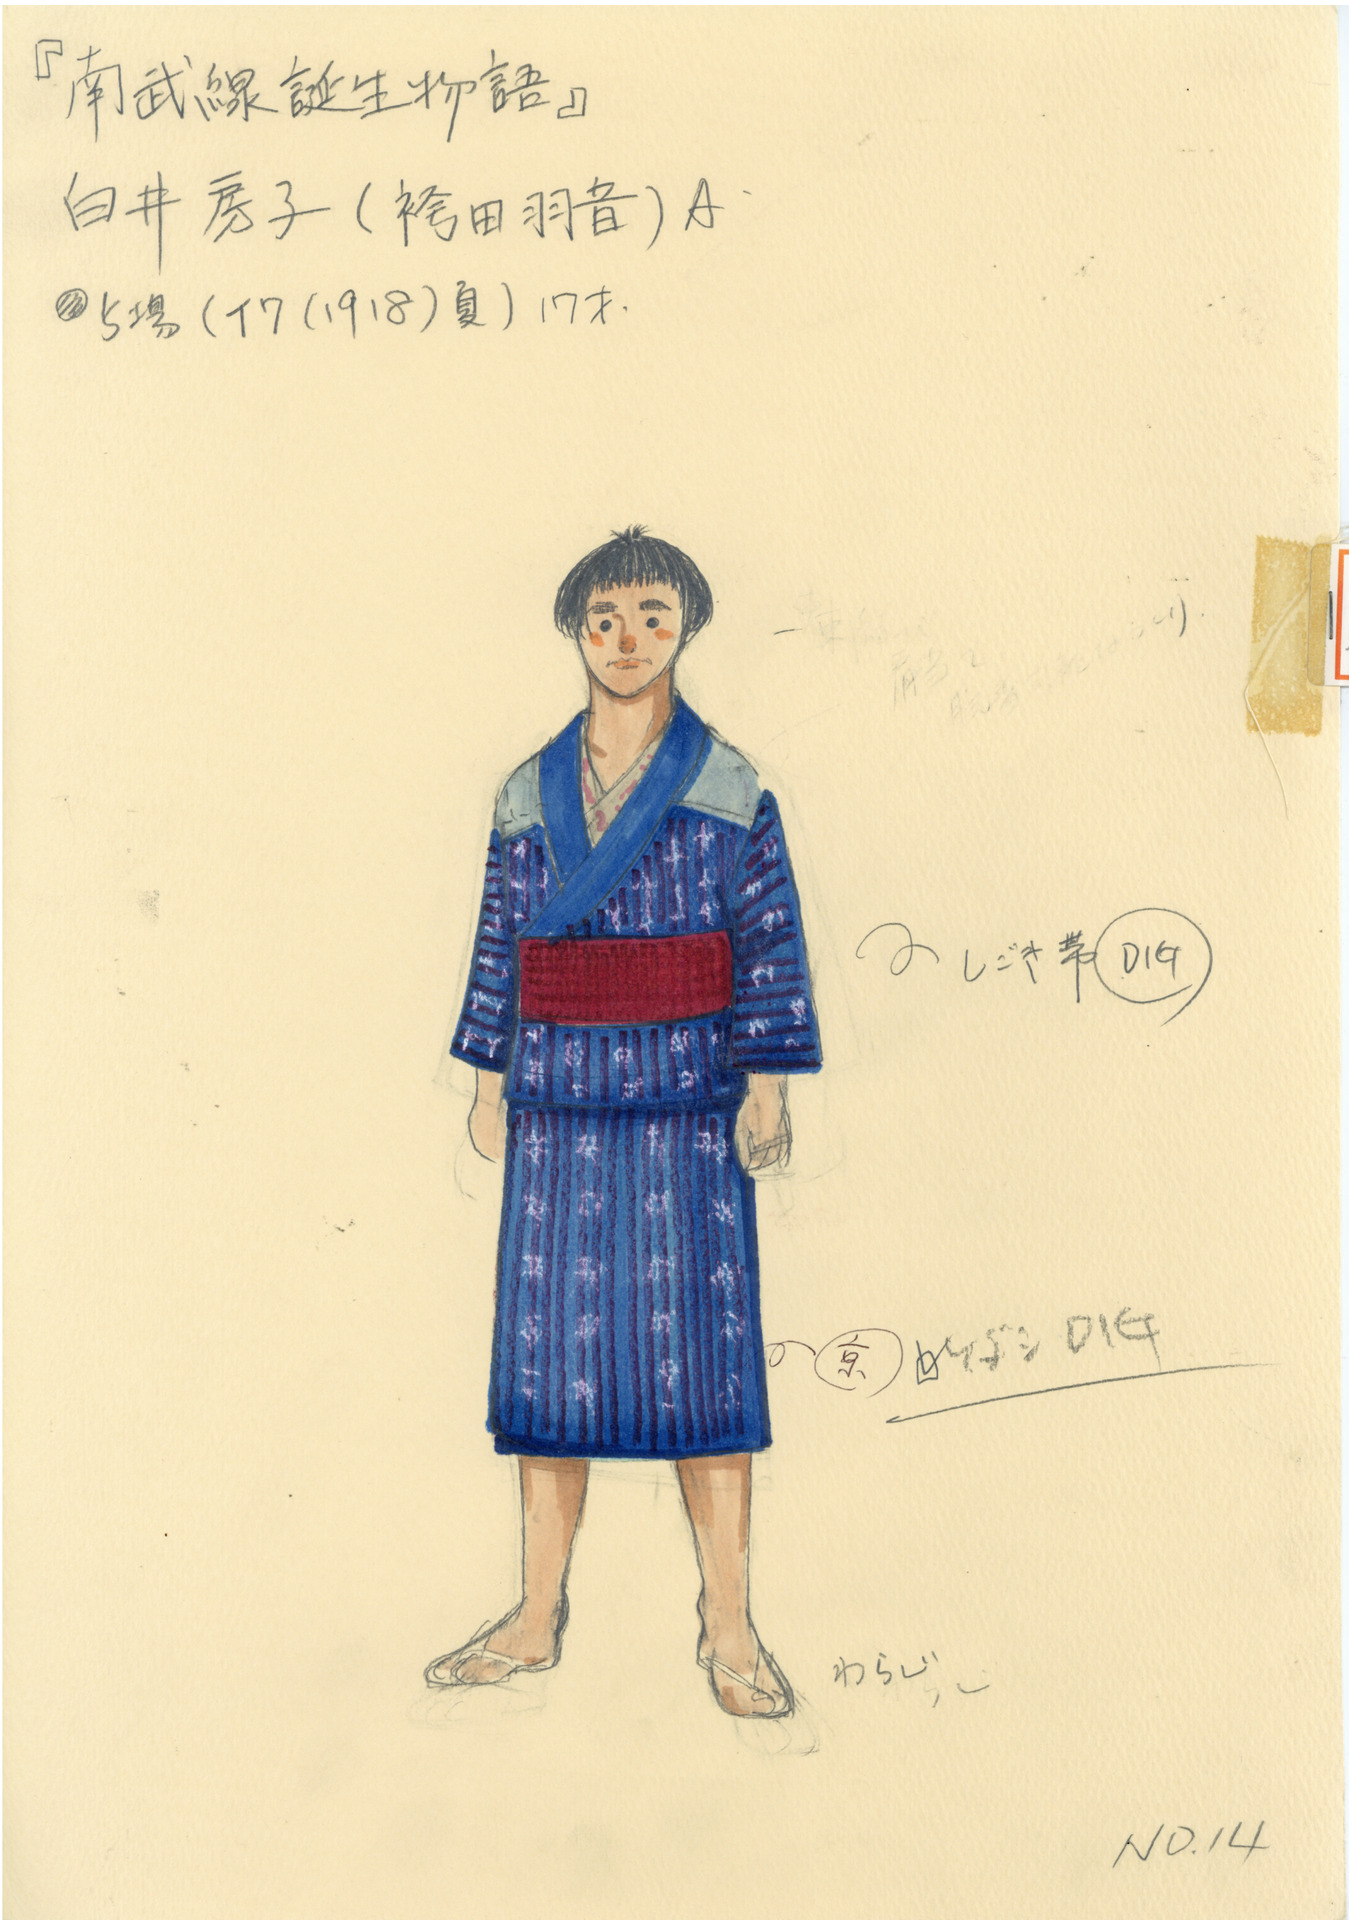 『南武線誕生物語』
白井房子(袴田羽音)A
5場(T7(1918)夏)17才.
肩当て
しごき帯 D14
京 D14
わらじ
NO.14